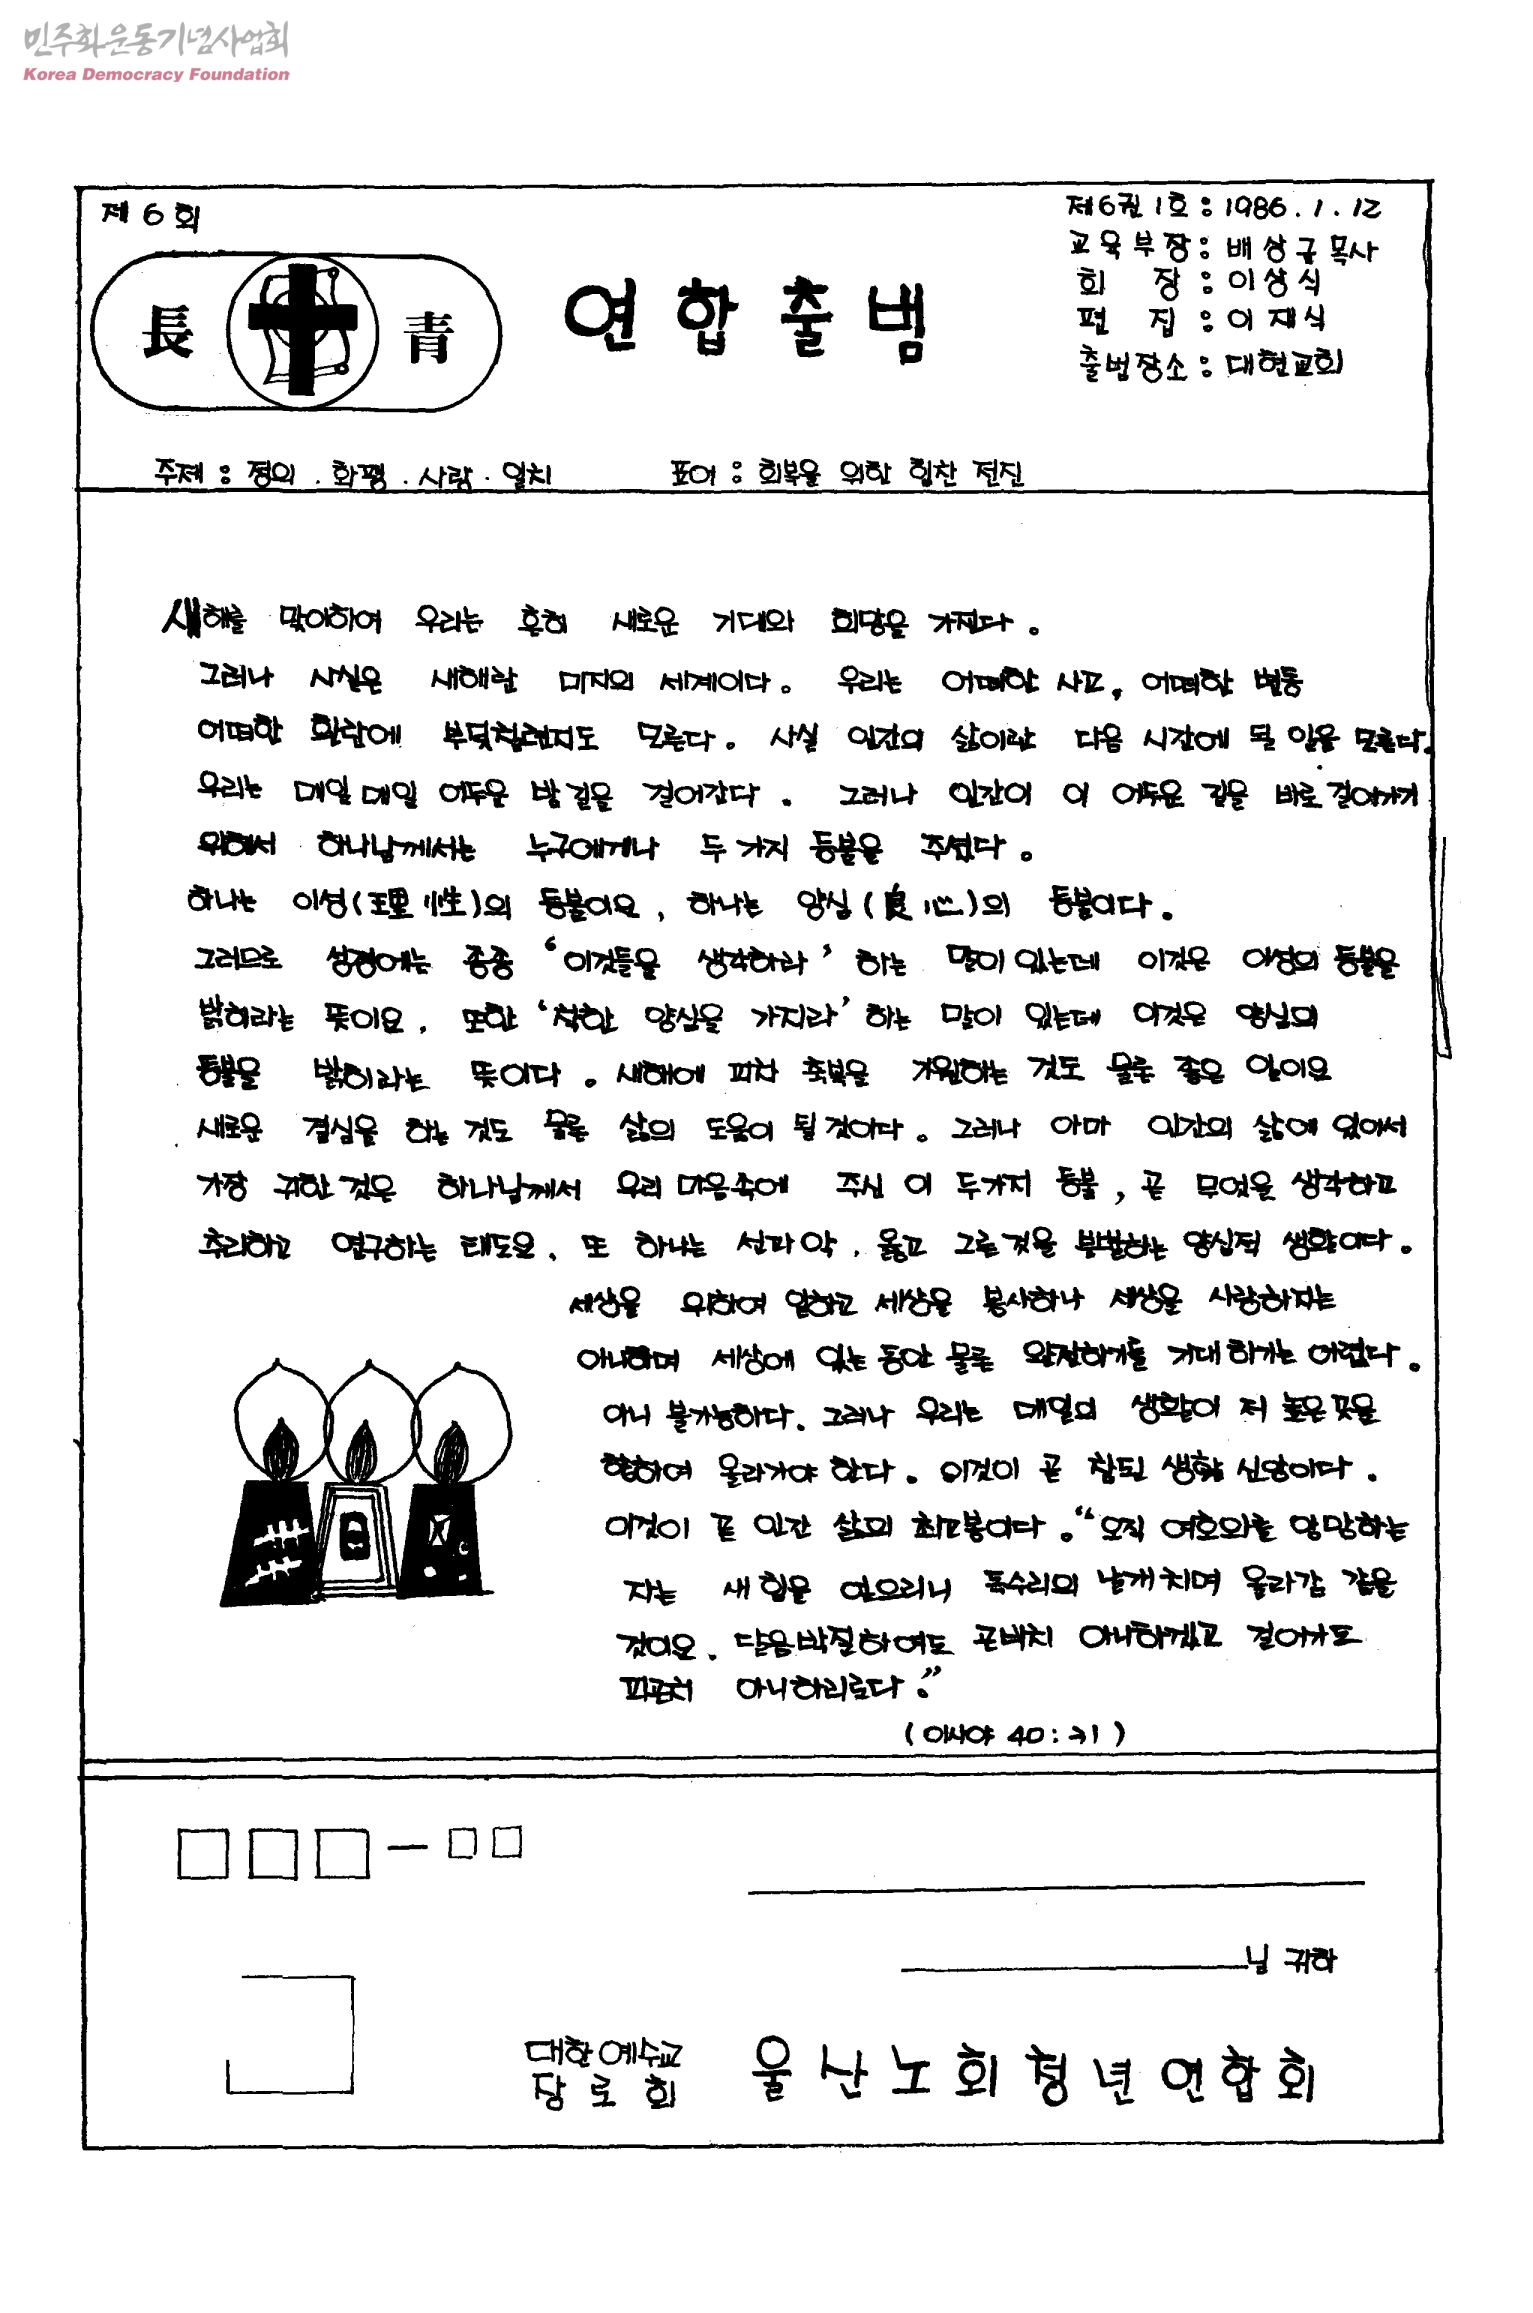 민주화운동기념사업회
Korea Democracy Foundation
제 6 회
제6권 1호 : 1986. 1. 12
교육부장 : 배상규 목사
회 장 : 이상식
편 집 : 이재식
출범장소 : 대현교회
長 青
연합출범
주제 : 정의 . 화평 . 사랑 . 일치 표어 : 회복을 위한 힘찬 전진
새해를 맞이하여 우리는 흔히 새로운 기대와 희망을 가진다.
그러나 사실은 새해란 미지의 세계이다. 우리는 어떠한 사고, 어떠한 변동
어떠한 환란에 부딪칠런지도 모른다. 사실 인간의 삶이란 다음 시간에 될 일을 모른다.
우리는 매일매일 어두운 밤길을 걸어간다. 그러나 인간이 이 어두운 길을 바로 걸어가기
위해서 하나님께서는 누구에게나 두 가지 등불을 주셨다.
하나는 이성(理性)의 등불이요, 하나는 양심(良心)의 등불이다.
그러므로 성경에는 종종 ‘이것들을 생각하라’ 하는 말이 있는데 이것은 이성의 등불을
밝히라는 뜻이요, 또한 ‘착한 양심을 가지라’ 하는 말이 있는데 이것은 양심의
등불을 밝히라는 뜻이다. 새해에 피차 축복을 기원하는 것도 물론 좋은 일이요
새로운 결심을 하는 것도 물론 삶의 도움이 될 것이다. 그러나 아마 인간의 삶에 있어서
가장 귀한 것은 하나님께서 우리 마음속에 주신 이 두가지 등불, 곧 무엇을 생각하고
추리하고 연구하는 태도요, 또 하나는 선과 악, 옳고 그른 것을 분별하는 양심적 생활이다.
세상을 위하여 일하고 세상을 봉사하나 세상을 사랑하지는
아니하며 세상에 있는 동안 물론 완전하기를 기대하기는 어렵다.
아니 불가능하다. 그러나 우리는 매일의 생활이 저 높은 곳을
향하여 올라가야 한다. 이것이 곧 참된 생활 신앙이다.
이것이 곧 인간 삶의 최고봉이다. “오직 여호와를 앙망하는
자는 새 힘을 얻으리니 독수리의 날개치며 올라감 같을
것이요, 달음박질하여도 곤비치 아니하겠고 걸어가도
피곤치 아니하리로다.”
(이사야 40 : 31)
님 귀하
대한예수교
장로회
울산노회청년연합회